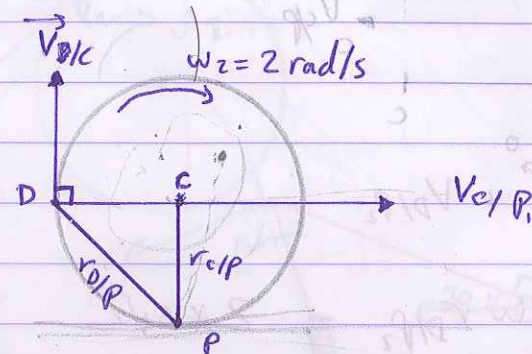 V D/C
ω₂ = 2 rad/s
D
C
V C/P₁
r D/P
r C/P
P